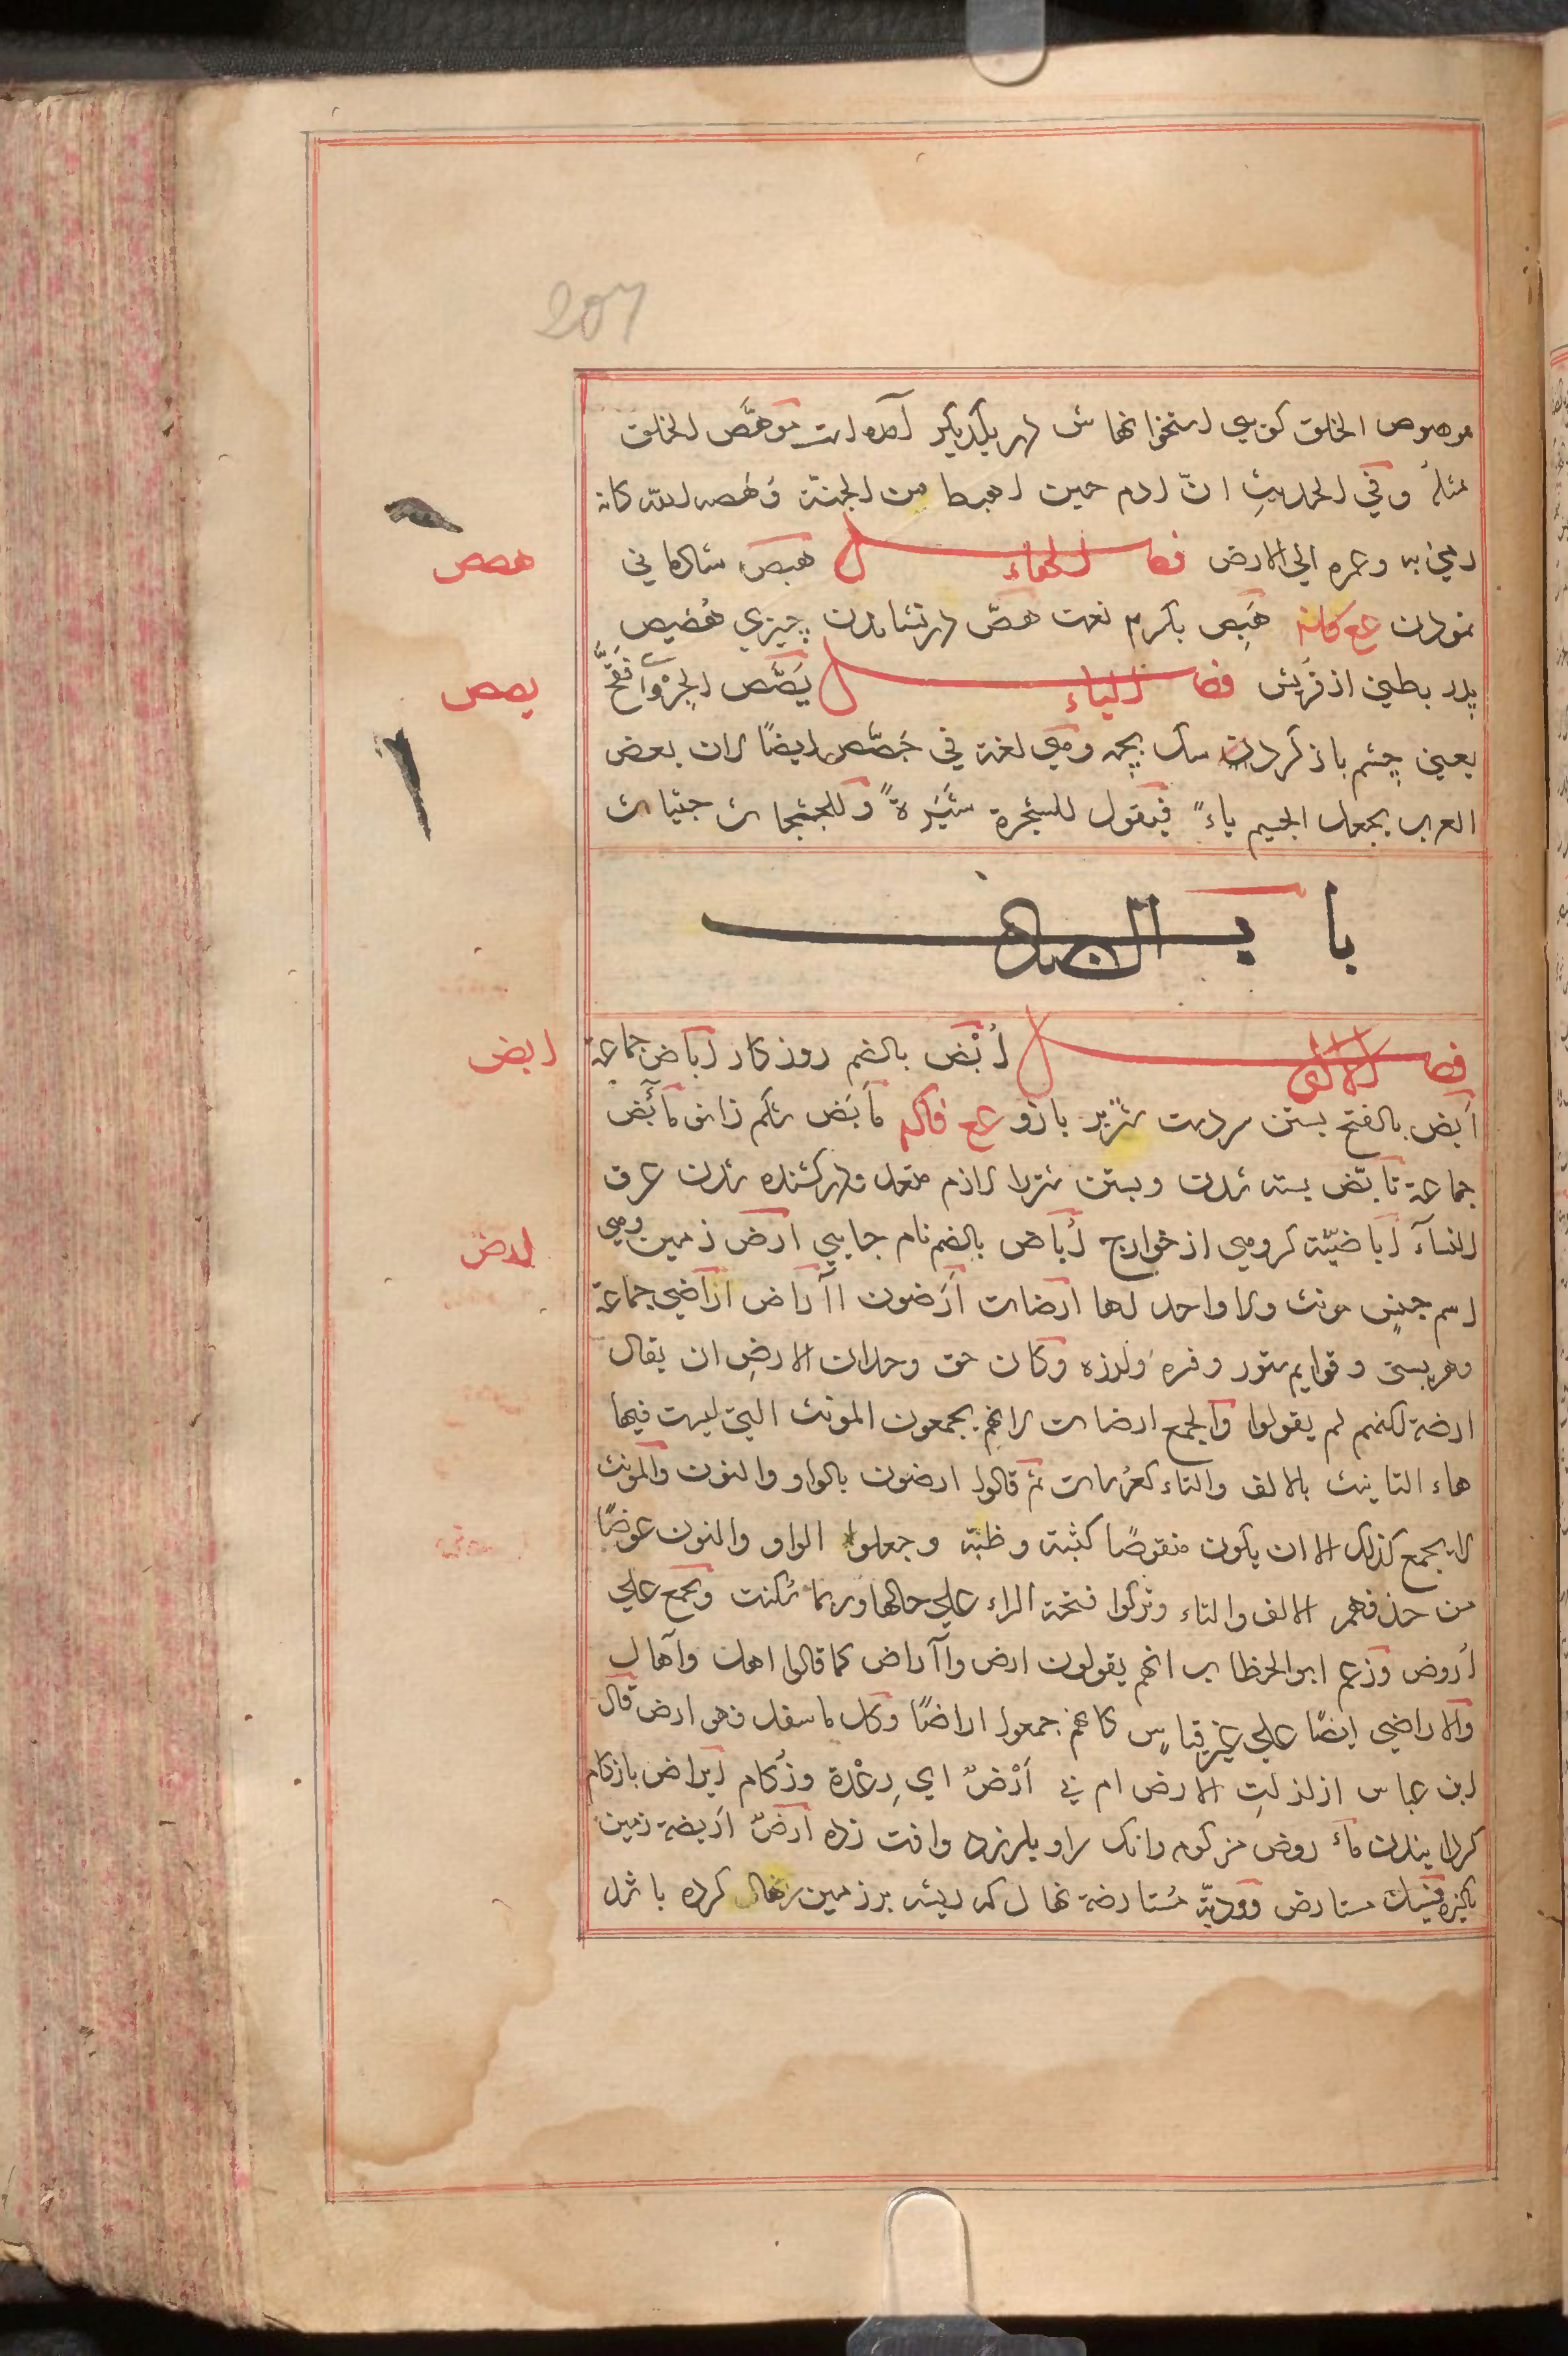 207
موهوص الخلق كوىي استخوانهاش در يكديكر آمده است موهّص الخلق
مثله وفي الحديثِ انّ ادم حين اهبط من الجنّة وَهَصه الله كانه
رمي به وغمره الي الارض فصل الهاء هبص شادماني
هصص
نمودن ع ع كانه هَبِص بكرم نعت هصّ در نشاندن چيزي هُصَيص
پدر بطني از قريش فصل الياء يَصَّص الجِرْوُ اَي فَقَّحَ
يصص
يعني چشم باز كردن سك بچه وهي لغة في جَصَّص ايضًا لان بعض
العرب يجعل الجيم ياءً فيقول للشجرة شَيَرةً وللجثجاث جثياث
باب الضاد
فصل الالف اُبْض بالضم روزكار اباض جماعة
ابض
اَبَض بالفتح بستن دست شتر بر بازو ع ع فاكه مأبَض شكم زانو مآبض
جماعة تابّض بسته شدن وبستن شتر را لازم متعد ودر كشنده شدن عرق
النساَ اباضيّة كروهي از خوارج اُباض بالضم نام جايي ارض زمين وهي
ارض
اسم جنسٍ مونث ولا واحد لها ارضات اَرَضون اآراض اراضي جماعة
وهر پستي وقوايم ستور وفره ولرزه وكان حق وحدان الارضِ ان يقال
ارضة لكنهم لم يقولوا والجمع ارضات لانهم يجمعون المونث التي ليست فيها
هاء التانيث بالالف والتاء كعُرسات ثم قالوا ارضون بالواو والنون والمونث
لا يجمع كذلك الا ان يكون منقوصًا كثبة وظبة وجعلوا الواو والنون عوضًا
من حذفهم الالف والتاء وتركوا فتحة الراء علي حالها وربما سُكنت ويجمع علي
اُروض وزعم ابو الخطاب انهم يقولون ارض وآاراض كما قالوا اهل وآهال
والاراضي ايضًا علي غير قياسٍ كانهم جمعوا اراضًا وكل ما سفل فهو ارض قال
ابن عباس ازلزلتِ الارض ام بي اَرْضٌ اي رِعْدة وزُكام ايراض با زكام
كردانيدن مأروض مزكوم وانك سر او بلرزد وافت زده ارضٌ اَريضة زمين
پاكيزه فسيل مستارض ووديّة مُستارضة نهال كه ريشه بر زمين كرده باشد